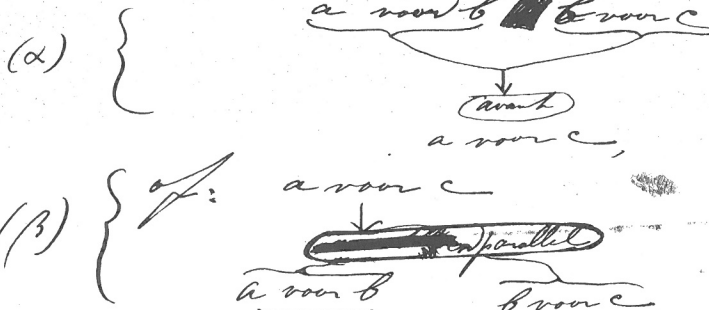 a voor b b voor c
(α)
avant
a voor c,
(β) of:
a voor c
en parallel
a voor b b voor c